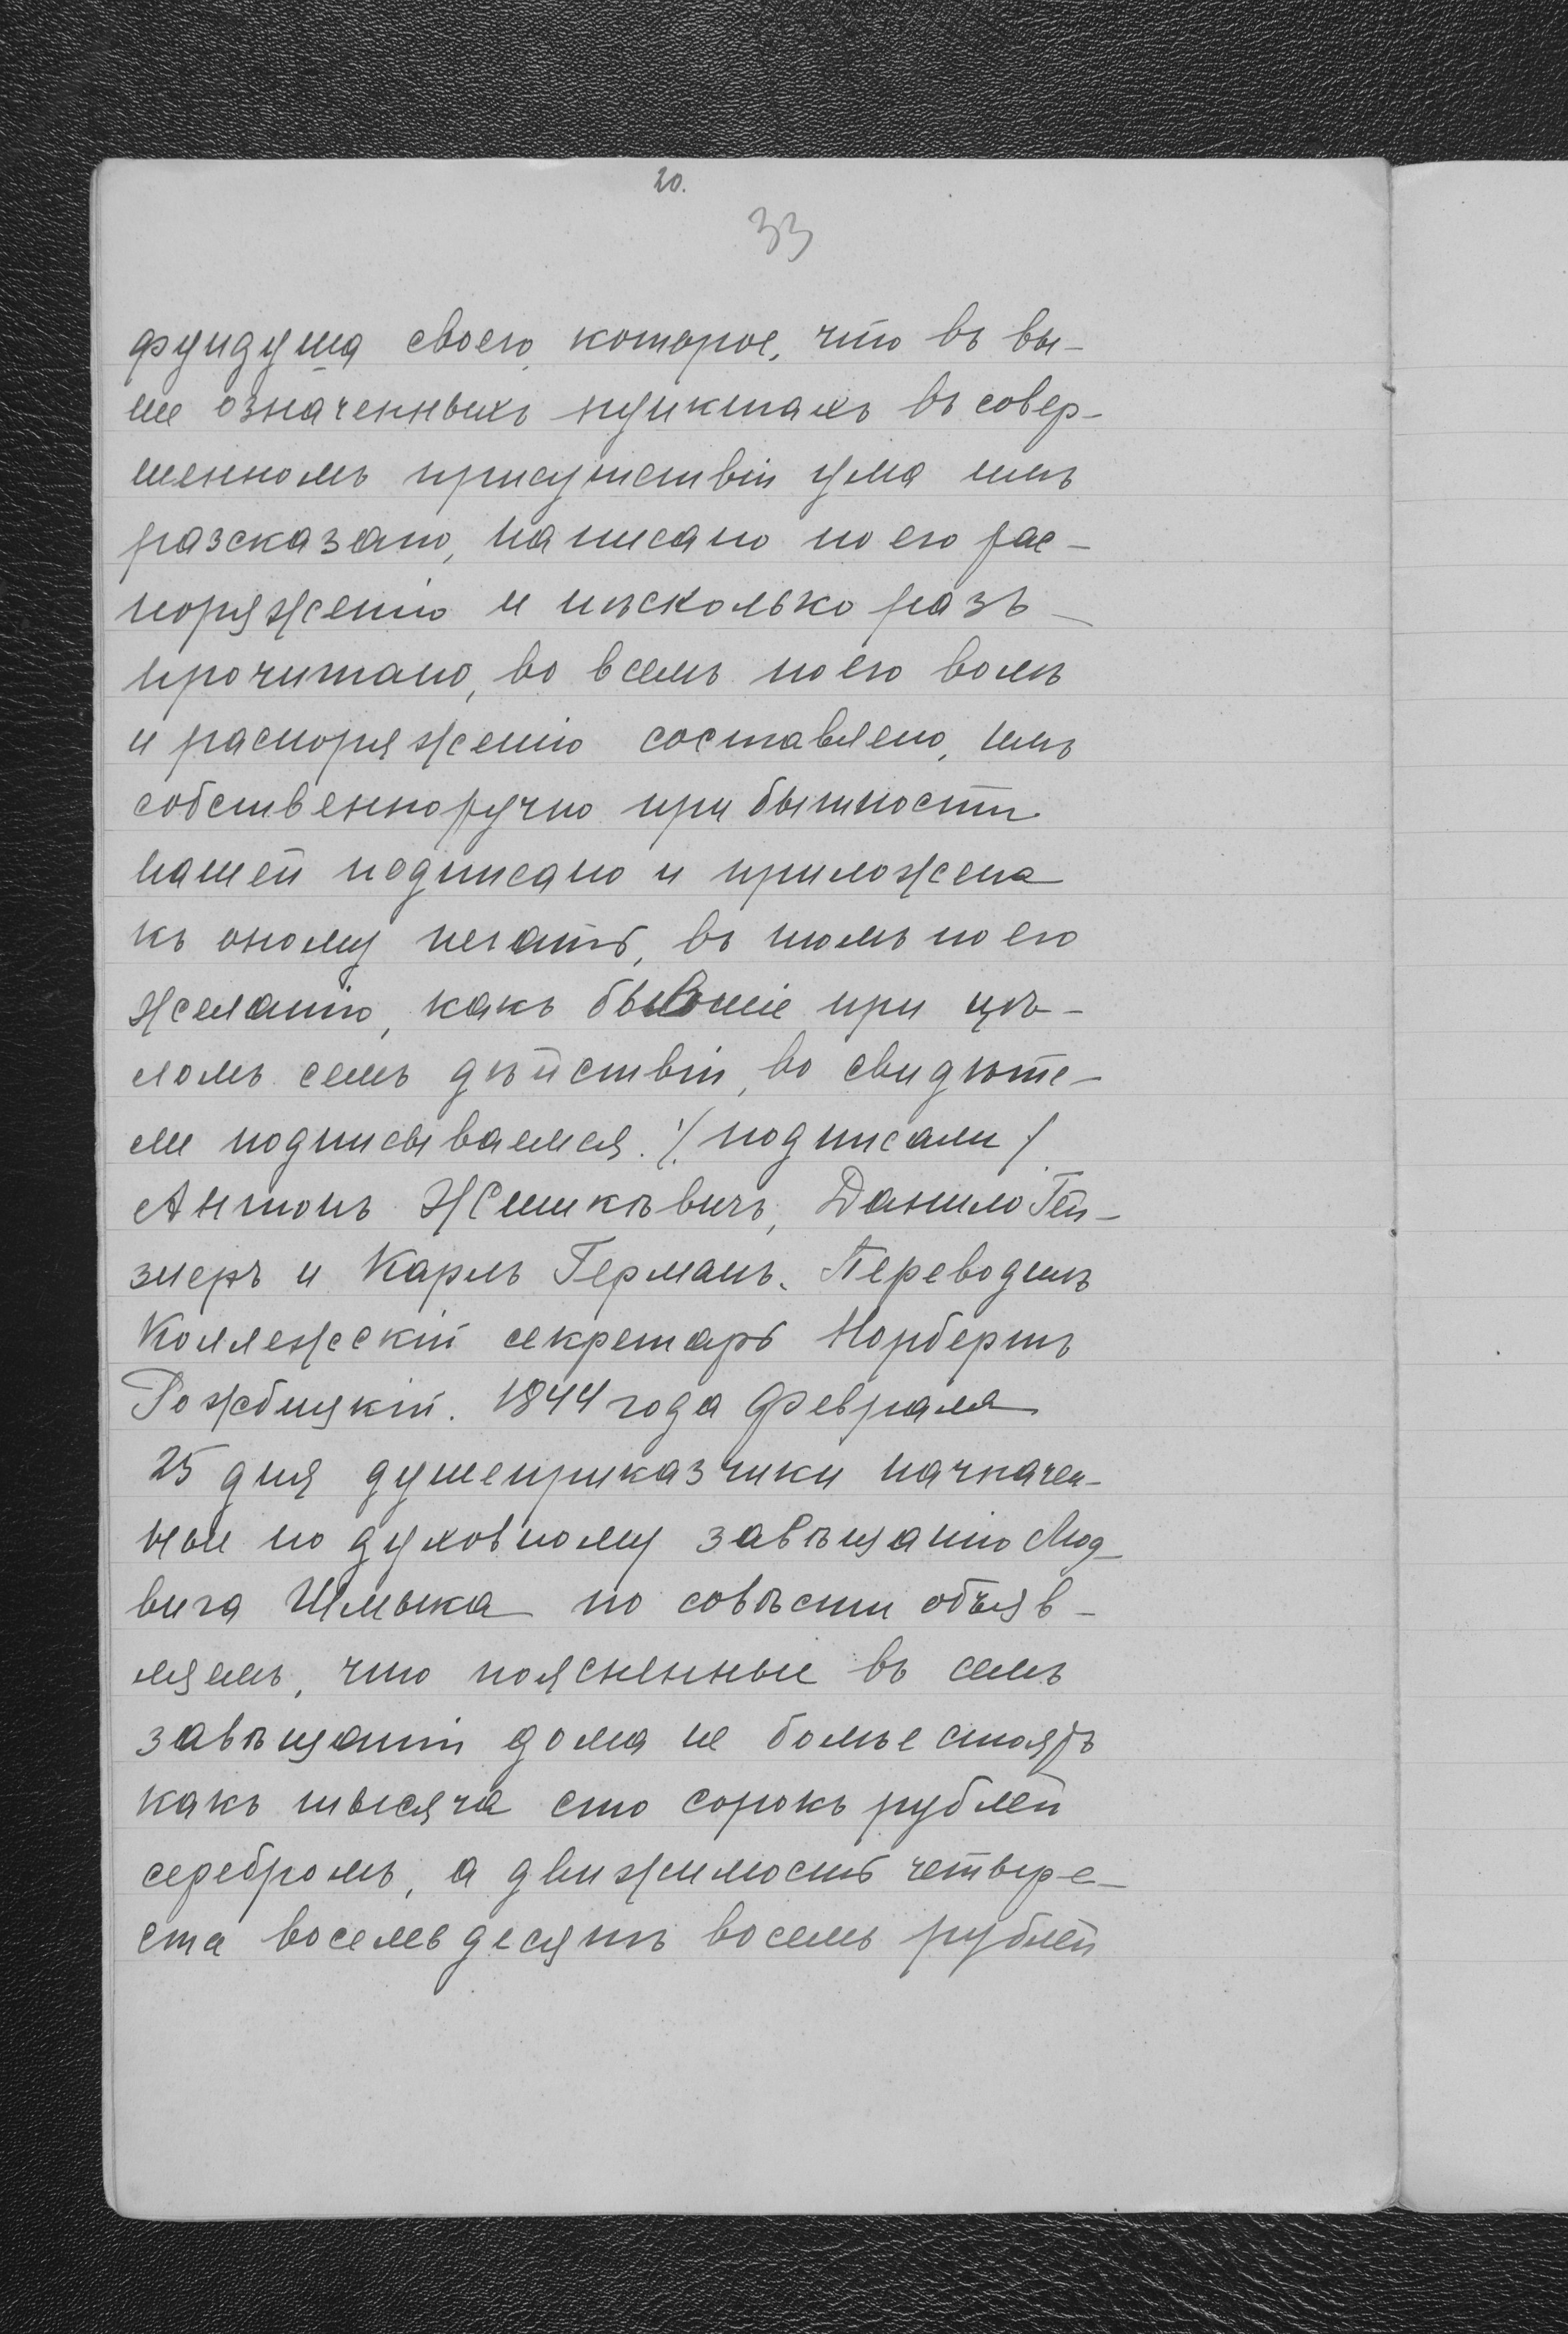 20.
33
фундуша своего, которое, что въ вы-
ше означенныхъ пунктахъ въ совер-
шенномъ присутствіи ума имъ
разсказано, написано по его рас-
поряженію и нѣсколько разъ
прочитано, во всемъ по его волѣ
и распоряженію составлено, имъ
собственноручно при бытности
нашей подписано и приложена
къ оному печать, въ томъ по его
желанію, какъ бывшіе при цѣ-
ломъ семъ дѣйствіи, во свидѣте-
ли подписываемся. /подписали/
Антонъ Жешкѣвичъ, Данило Гей-
знеръ и Карлъ Германъ. Переводилъ
Коллежскій секретарь Норбертъ
Рожбицкій. 1844 года Февраля
25 дня душеприказчики начначен-
ные по духовному завѣщанію Люд-
вига Шмыка по совѣсти объяв-
ляемъ, что поясненные въ семъ
завѣщаніи дома не болѣе стоятъ
какъ тысяча сто сорокъ рублей
серебромъ, а движимость четыре-
ста восемьдесятъ восемь рублей